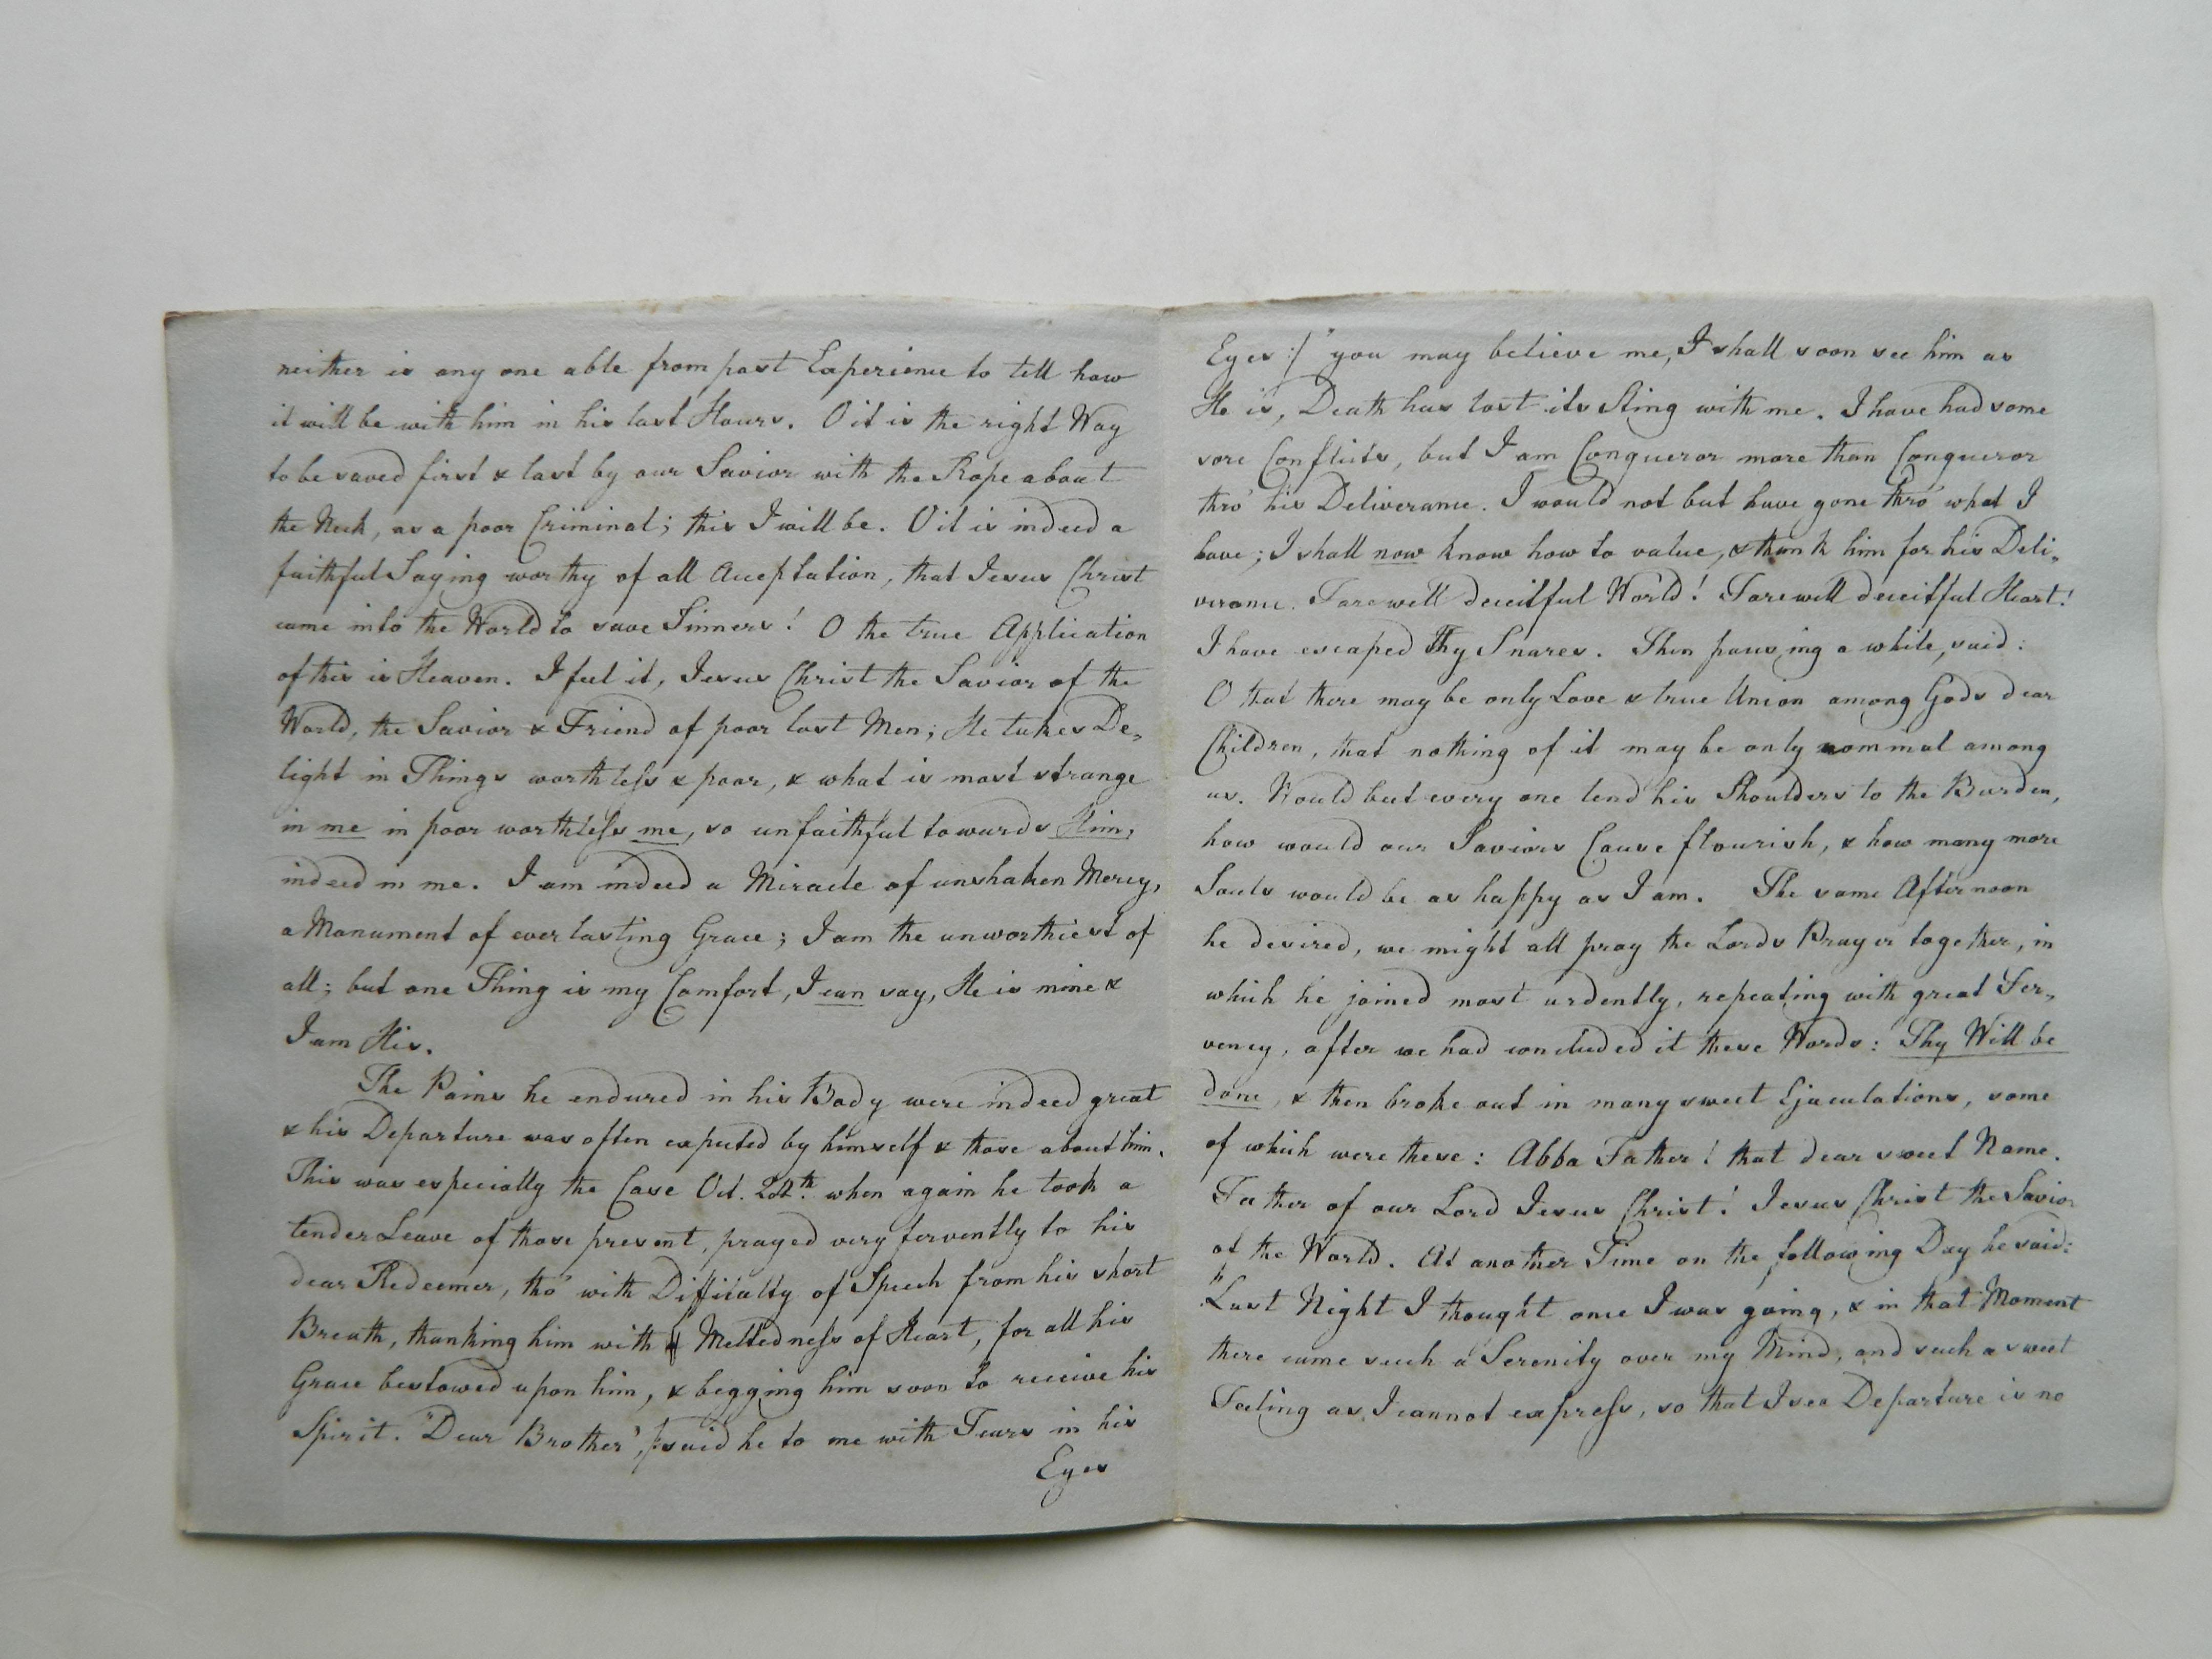 neither is any one able from past Experience to tell how
it will be with him in his last Hours. O it is the right Way
to be saved first & last by our Savior with the Rope about
the Neck, as a poor Criminal; this I will be. O it is indeed a
faithful Saying worthy of all Acceptation, that Jesus Christ
came into the World to save Sinners! O the true Application
of this is Heaven. I feel it, Jesus Christ the Savior of the
World, the Savior & Friend of poor lost Men; He takes De-
light in Things worthless & poor, & what is most strange
in me in poor worthless me, so unfaithful towards Him,
indeed in me. I am indeed a Miracle of unshaken Mercy,
a Monument of everlasting Grace; I am the unworthiest of
all; but one Thing is my Comfort, I can say, He is mine &
I am His.
The Pains he endured in his Body were indeed great
& his Departure was often expected by himself & those about him.
This was especially the Case Oct. 24th. when again he took a
tender Leave of those present, prayed very fervently to his
dear Redeemer, tho' with Difficulty of Speech from his short
Breath, thanking him with Meltedness of Heart, for all his
Grace bestowed upon him, & begging him soon to receive his
Spirit. "Dear Brother", /:said he to me with Tears in his
Eyes
Eyes:/ "you may believe me, I shall soon see him as
He is, Death has lost its Sting with me. I have had some
sore Conflicts, but I am Conqueror more than Conqueror
thro' his Deliverance. I would not but have gone thro' what I
have; I shall now know how to value, & thank him for his Deli-
verance. Farewell deceitful World! Farewell deceitful Heart!
I have escaped Thy Snares. Then pausing a while, said:
O that there may be only Love & true Union among Gods dear
Children, that nothing of it may be only nominal among
us. Would but every one lend his Shoulders to the Burden,
how would our Saviors Cause flourish, & how many more
Souls would be as happy as I am. The same Afternoon
he desired, we might all pray the Lords Prayer together, in
which he joined most ardently, repeating with great Fer-
vency, after we had concluded it these Words: Thy Will be
done, & then broke out in many sweet Ejaculations, some
of which were these: Abba Father! that dear sweet Name.
Father of our Lord Jesus Christ! Jesus Christ the Savior
of the World. At another Time on the following Day he said:
"Last Night I thought once I was going, & in that Moment
there came such a Serenity over my Mind, and such a sweet
Feeling as I cannot express, so that I see Departure is no